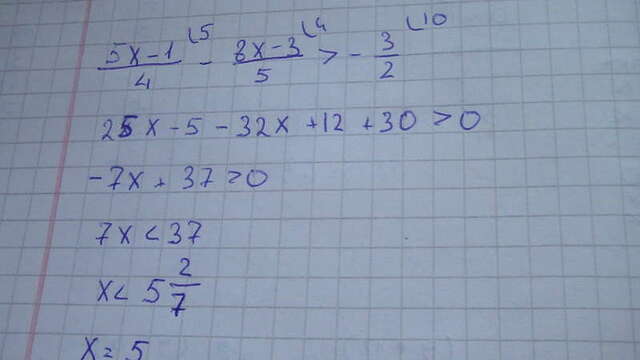 (5x-1)/4 ⌞5 - (8x-3)/5 ⌞4 > - 3/2 ⌞10
25x - 5 - 32x + 12 + 30 > 0
-7x + 37 > 0
7x < 37
x < 5 2/7
x = 5